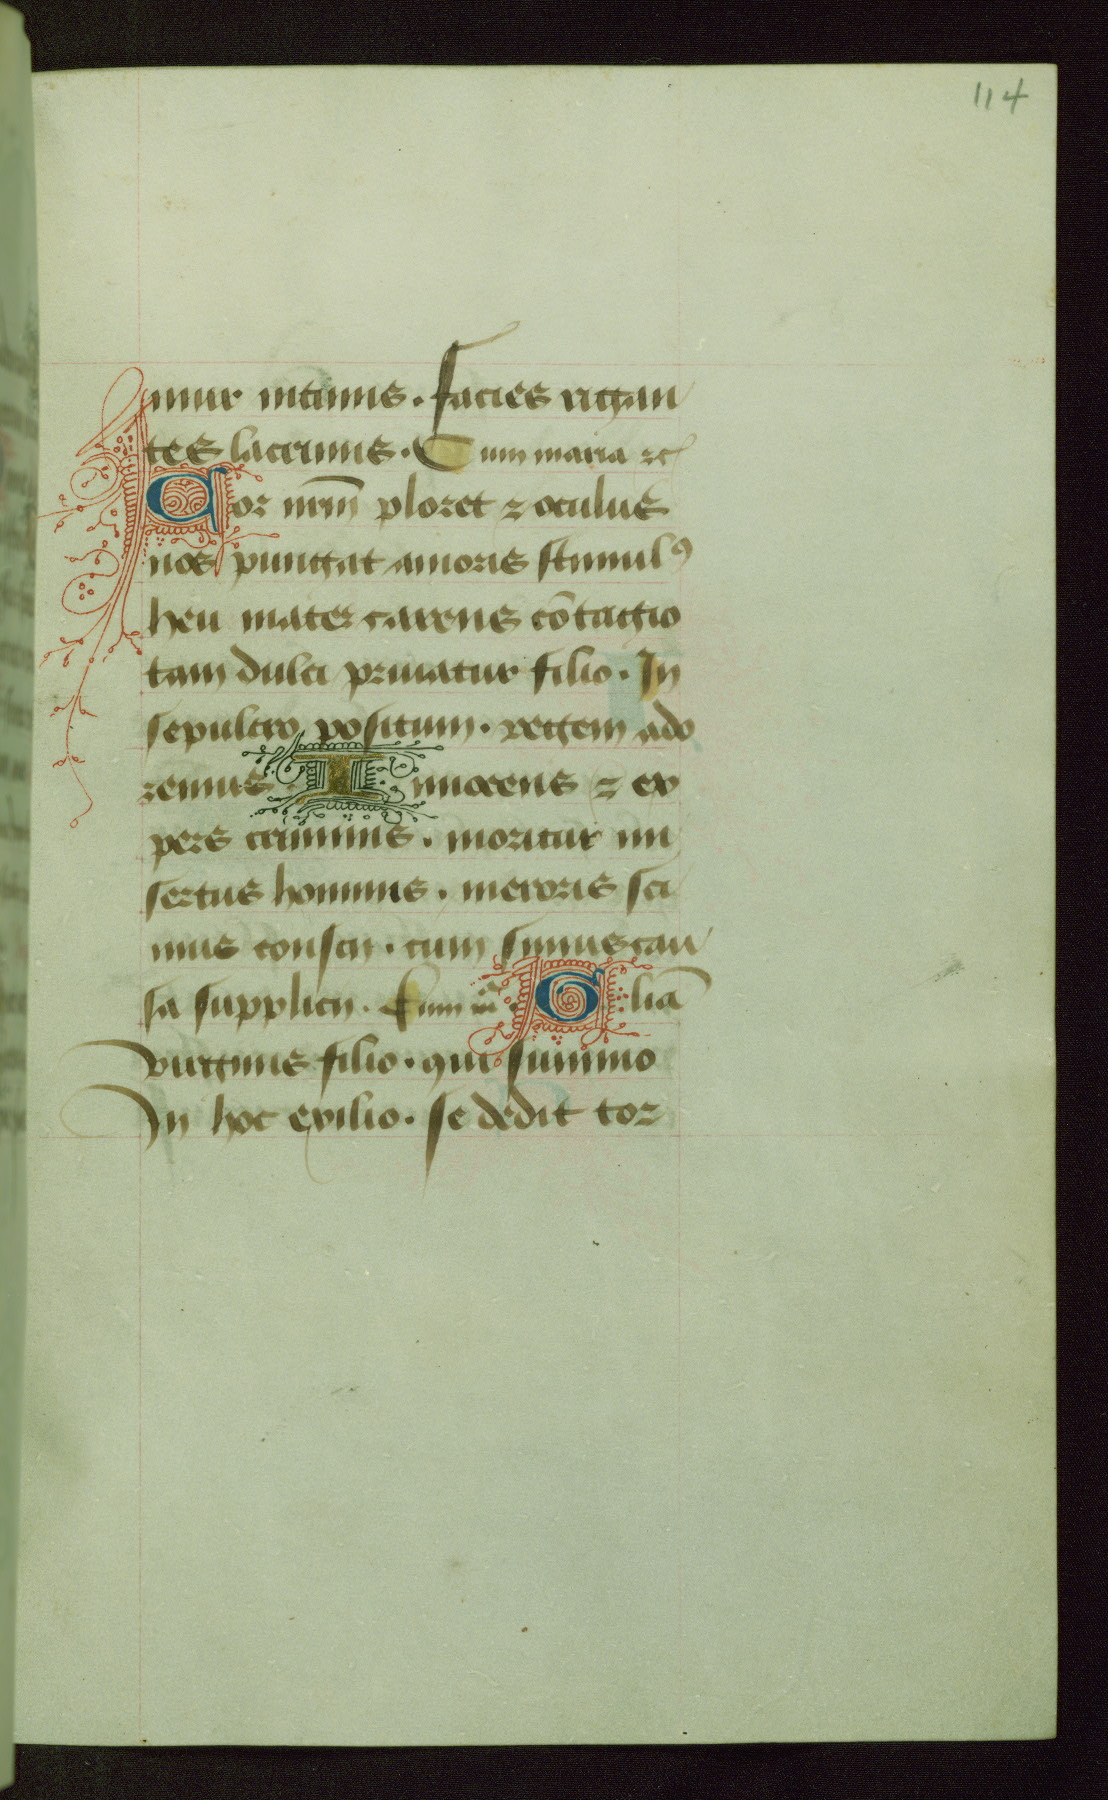 114
mur intimis. facies rigan
tes lacrimis. Cum maria ⁊c
Cor nr̄m ploret ⁊ oculus
nos pungat amoris stimulꝰ
heu mater carens cōtagio
tam dulci priuatur filio. In
sepulcro positum. regem ado
remus Innocens ⁊ ex
pers criminis. moritur in
sertus hominis. meroris sci
mus conscii. cum simus cau
sa supplicii. Cum m̄. Gliā
virginis filio. qui summo
In hoc exilio. se dedit tor